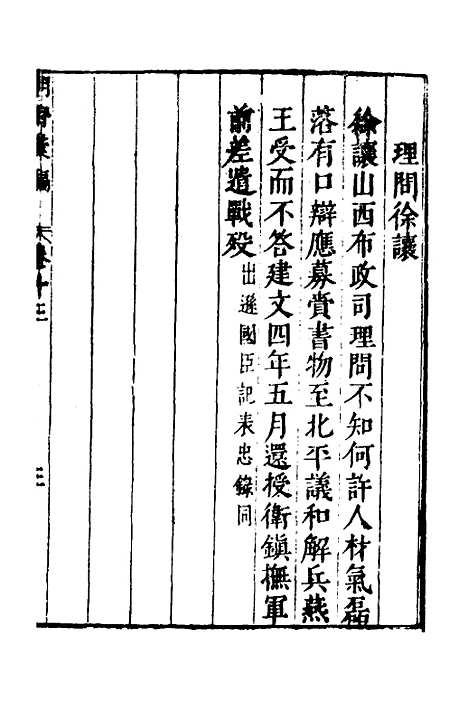 理問徐讓
徐讓山西布政司理問不知何許人材氣磊
落有口辯應募賫書物至北平議和解兵燕
王受而不答建文四年五月還授衛鎮撫軍
前差遣戰殁出遜國臣記表忠錄同
卷十三
三